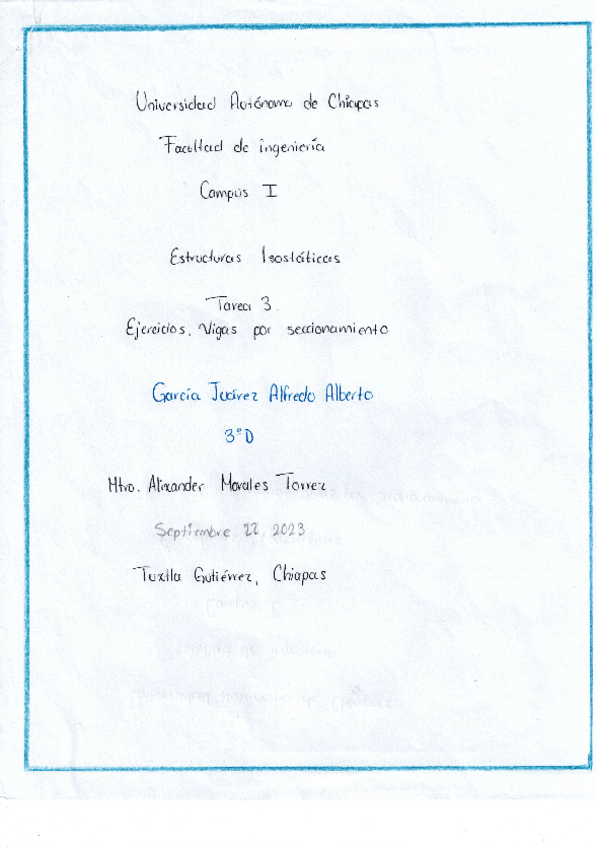 Universidad Autónoma de Chiapas
Facultad de ingeniería
Campus I
Estructuras Isostáticas
Tarea 3.
Ejercicios. Vigas por seccionamiento
García Juárez Alfredo Alberto
3°D
Mtro. Alexander Morales Torrez
Septiembre 22, 2023
Tuxtla Gutiérrez, Chiapas